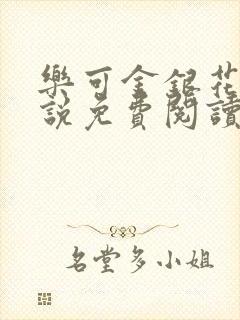 樂可金銀花
說免費閱讀
名堂多小姐